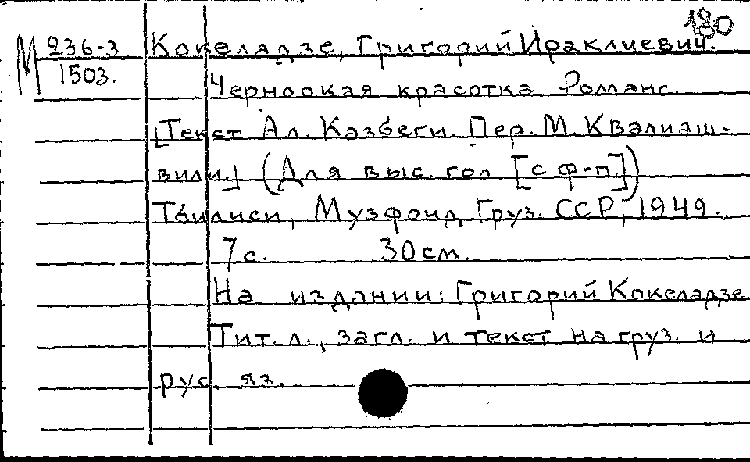 180
М 236-3 Кокеладзе, Григорий Ираклиевич.
1503.
Черноокая красотка Романс
[Текст Ал. Казбеги. Пер. М. Квалиаш-
вили.] (Для выс. гол [с ф-п])
Тбилиси, Музфонд Груз. ССР, 1949.
7 с. 30 см.
На издании: Григорий Кокеладзе
Тит. л., загл. и текст на груз. и
рус. яз.